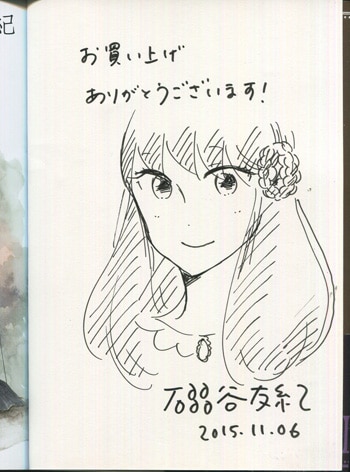 紀
お買い上げ
ありがとうございます!
磯谷友紀
2015.11.06